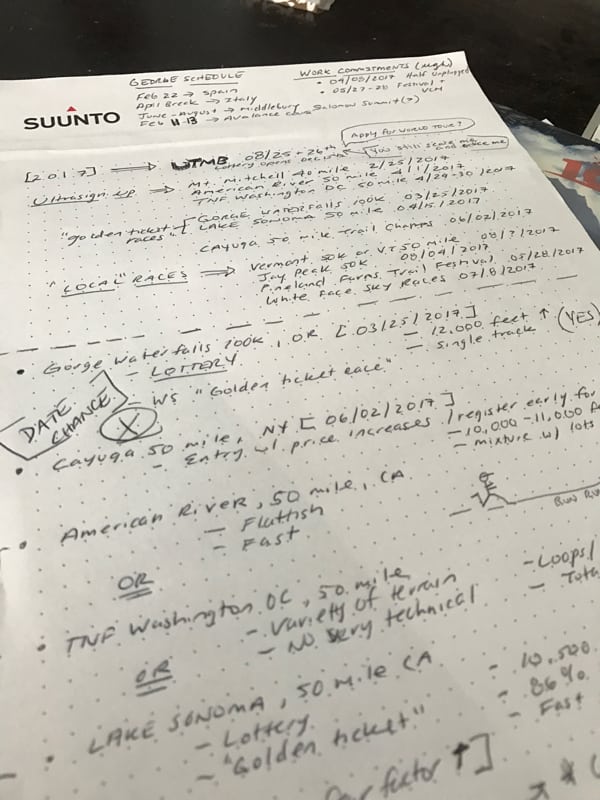 GEORGE SCHEDULE
Feb 22 → Spain
April Break → Italy
June-August → Middlebury
Feb 11-13 → Avalance class
Salomon Summit (?)
WORK COMMITMENTS (ugh)
• 04/08/2017 Half Unplugged
• 05/27-28 Festival +
VCM
SUUNTO
[2017] → UTMB 08/25-26th
Lottery opens December
Apply for WORLD TOUR?
You still scare me
Ultrasign up → Mt. Mitchell 40 mile 2/25/2017
American River 50 mile 4/1/2017
TNF Washington DC 50 mile 4/29-30/2017
"golden ticket races" GORGE WATERFALLS 100K 03/25/2017
LAKE SONOMA 50 mile 04/15/2017
CAYUGA 50 mile Trail Champs 06/02/2017
"LOCAL" RACES → Vermont 50K or VT 50 mile 08/?/2017
Jay Peak 50K 08/04/2017
Pineland Farms Trail Festival 05/28/2017
White Face Sky Races 07/8/2017
• Gorge Waterfalls 100K, OR [03/25/2017]
- LOTTERY
- 12,000 feet ↑ (YES)
- WS "Golden ticket race"
- single track
DATE CHANGE
X
• Cayuga 50 mile, NY [06/02/2017]
- Entry w/ price increases / register early for
- 10,000-11,000
- mixture w/ lots
• American River, 50 mile, CA
- Flattish
- Fast
RUN RU
OR
• TNF Washington DC, 50 mile
- Variety of terrain
- No very technical
- Loops/
- Tota
OR
• LAKE SONOMA, 50 mile CA
- Lottery
- "Golden ticket"
- 10,500
- 86%
- Fast
factor ↑]